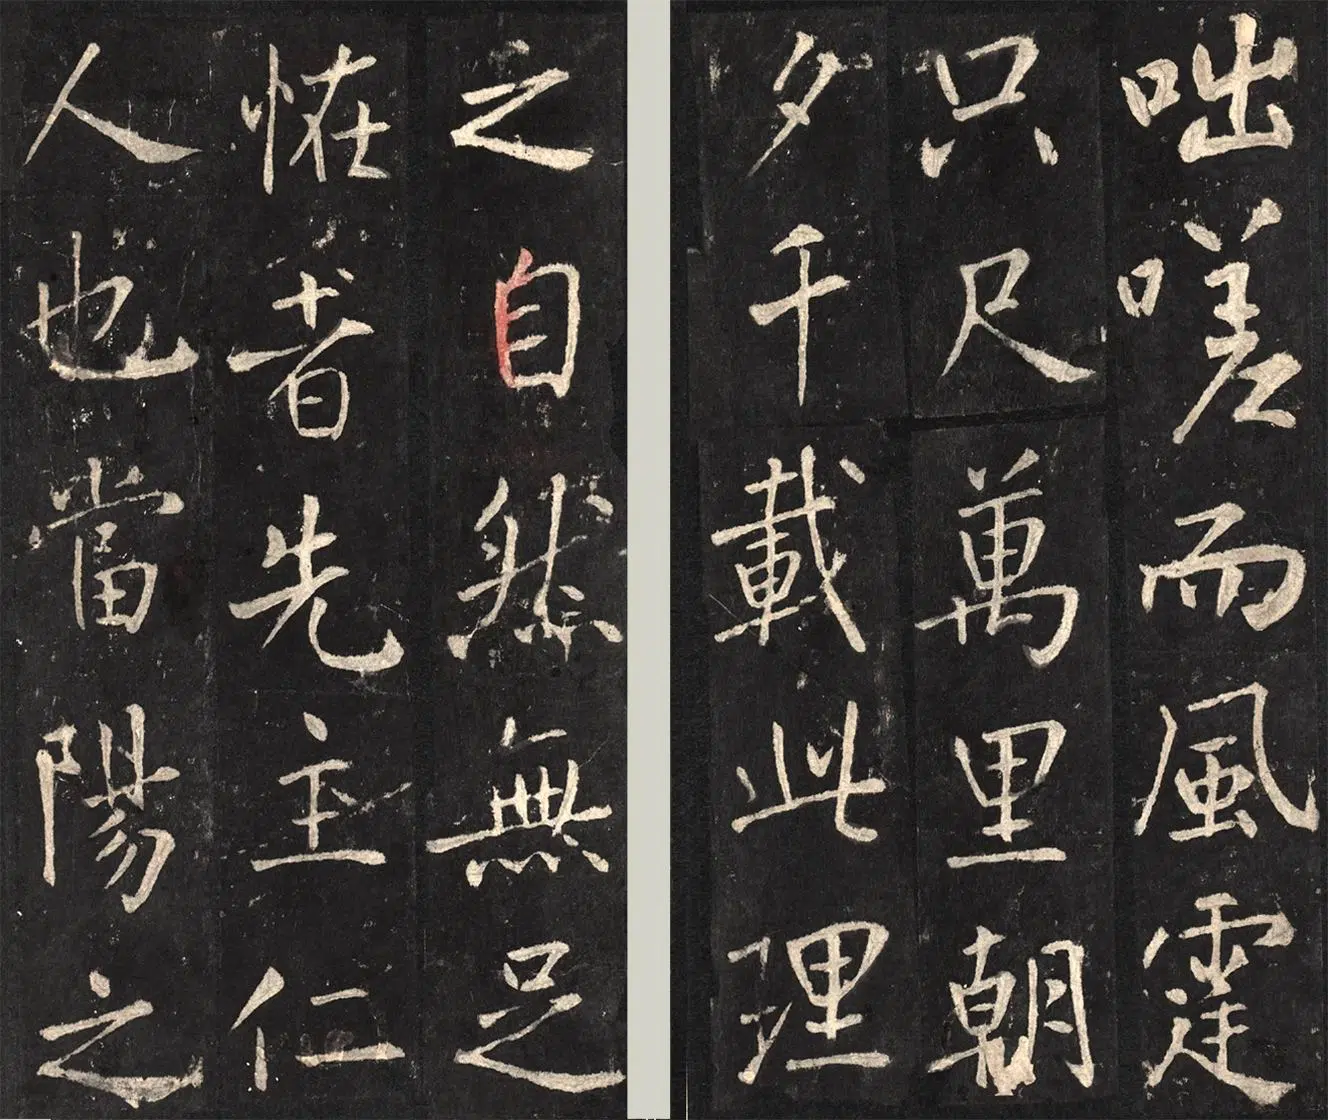 咄嗟而風霆
只尺萬里朝
夕千載此理
之自然無足
恠者先主仁
人也當陽之